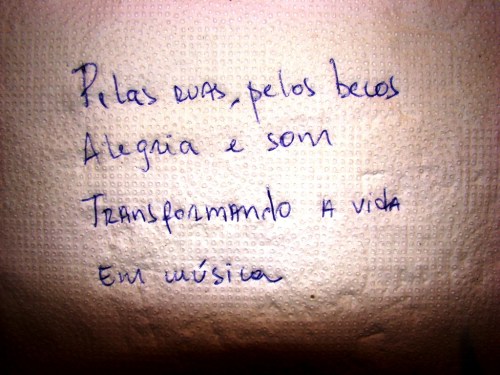 Pelas ruas, pelos becos
Alegria e som
Transformando a vida
Em música